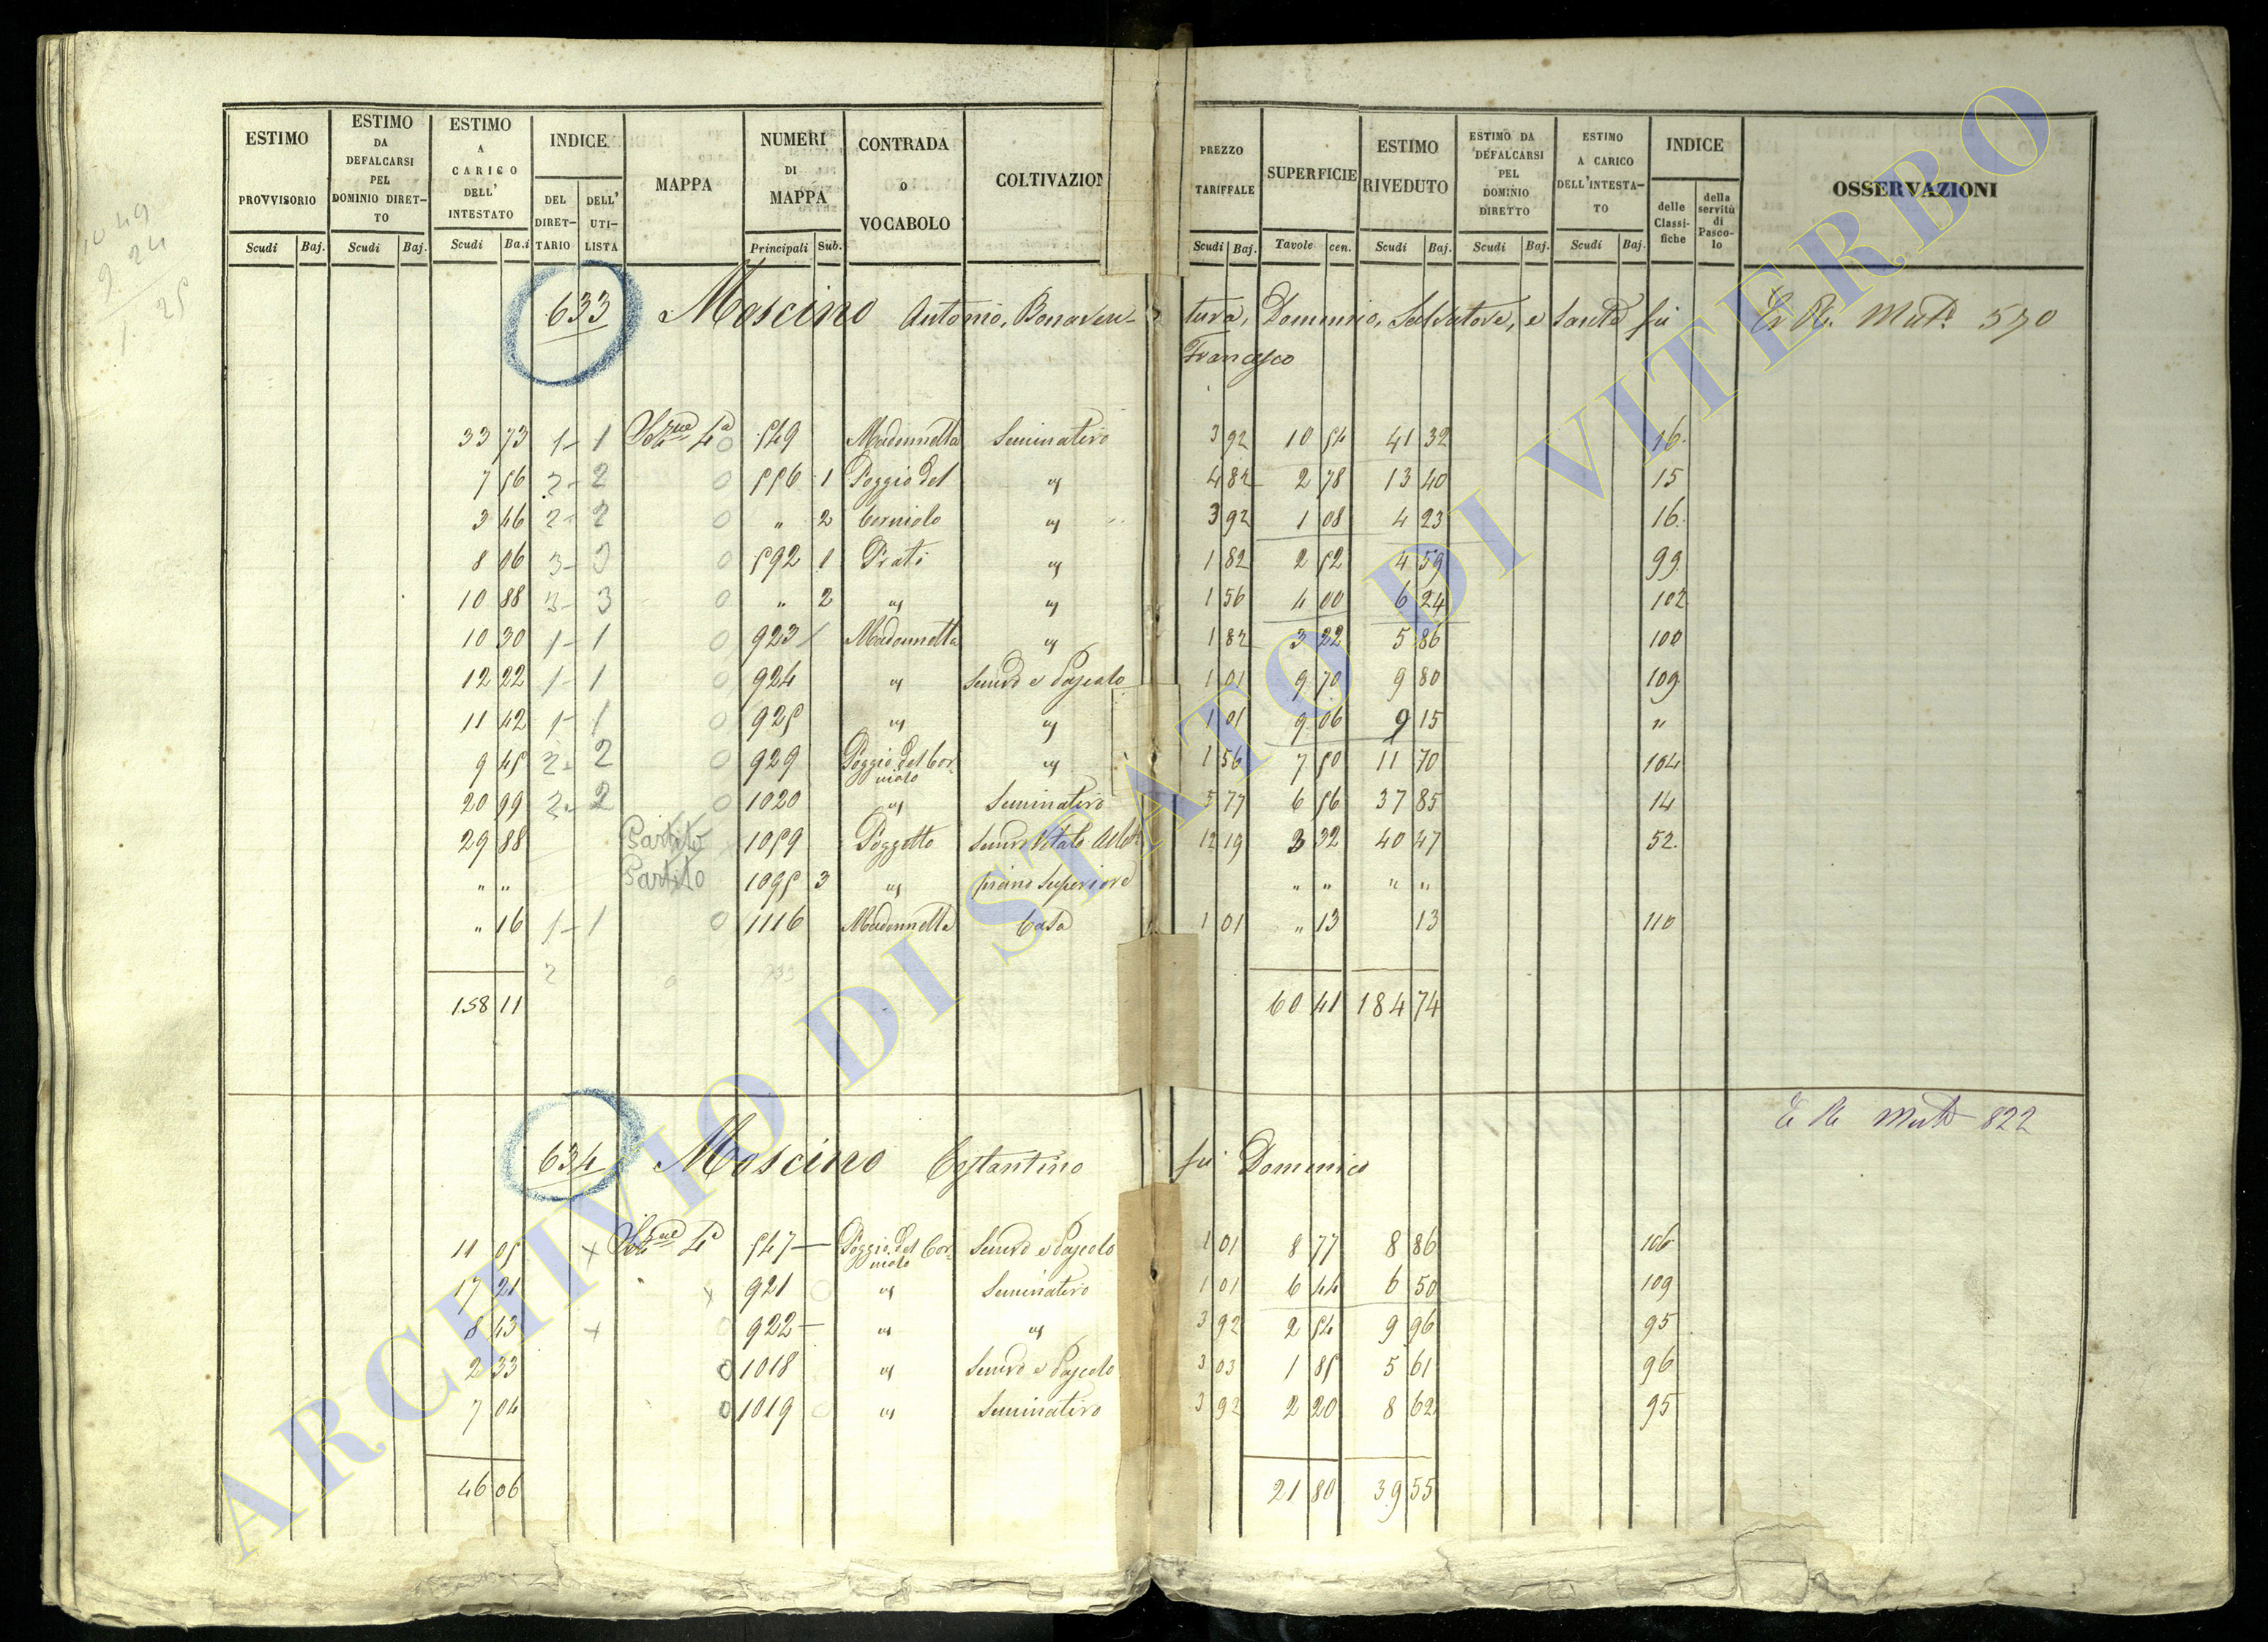 ESTIMO PROVVISORIO Scudi Baj.
ESTIMO DA DEFALCARSI PEL DOMINIO DIRETTO Scudi Baj.
ESTIMO A CARICO DELL' INTESTATO Scudi Ba.i
INDICE DEL DIRETTARIO DELL' UTILISTA
MAPPA
NUMERI DI MAPPA Principali Sub.
CONTRADA O VOCABOLO
COLTIVAZION
PREZZO TARIFFALE Scudi Baj.
SUPERFICIE Tavole cen.
ESTIMO RIVEDUTO Scudi Baj.
ESTIMO DA DEFALCARSI PEL DOMINIO DIRETTO Scudi Baj.
ESTIMO A CARICO DELL'INTESTATO Scudi Baj.
INDICE delle Classifiche della servitù di Pascolo
OSSERVAZIONI
633 Moscino Antonio, Bonaventura, Domenico, Salvatore, e Sante fu 570
Francesco
33 73 1 - 1 4a 0 549 Madonnella Seminativo 3 92 10 54 41 32 16
7 56 2 - 2 0 556 1 Poggio del " 4 82 2 78 13 40 15
3 46 2 - 2 0 " 2 Corniolo " 3 92 1 08 4 23 16
8 06 3 - 3 0 592 1 Prati " 1 82 2 52 4 59 99
10 88 3 - 3 0 " 2 " " 1 56 4 00 6 24 102
10 30 1 - 1 0 923 Madonnella " 1 82 3 22 5 86 100
12 22 1 - 1 0 924 " Semvo e Pascolo 1 01 9 70 9 80 109
11 42 1 - 1 0 925 " " 1 01 9 06 9 15 "
9 45 2 - 2 0 929 Poggio del Corniolo " 1 56 7 50 11 70 104
20 99 2 - 2 0 1020 " Seminativo 5 77 6 56 37 85 14
29 88 Partito 1059 Poggetto Semvo Vitato 12 19 3 32 40 47 52
" " Partito 1095 3 " piano superiore " " " "
" 16 1 - 1 0 1116 Madonnella Casa 1 01 " 13 13 110
158 11 60 41 184 74
822
634 Moscino Costantino fu Domenico
11 05 x 4a 547 Poggio del Corniolo Semvo e Pascolo 1 01 8 77 8 86 106
17 21 x 921 " Seminativo 1 01 6 44 6 50 109
8 43 x 922 " " 3 92 2 54 9 96 95
2 33 0 1018 " Semvo e Pascolo 3 03 1 85 5 61 96
7 04 0 1019 " Seminativo 3 92 2 20 8 62 95
46 06 21 80 39 55
ARCHIVIO DI STATO DI VITERBO